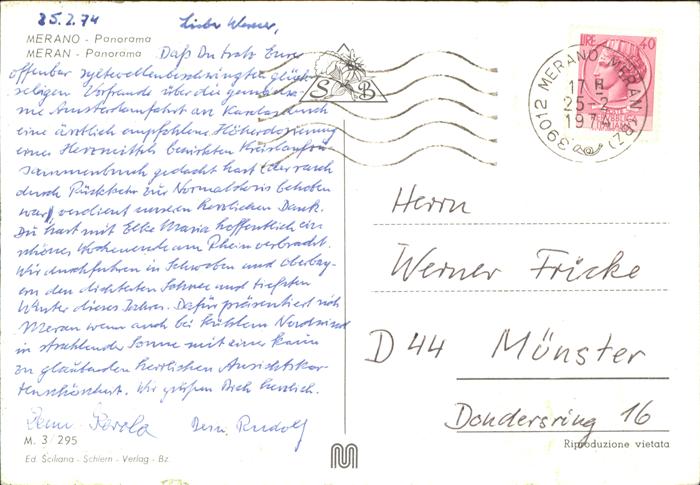 25.2.74 Lieber Werner,
MERANO - Panorama
MERAN - Panorama
Daß Du trotz Eurer
offenbar glück-
seligen Vorfreude über die gemeinsa-
me Amsterdamfahrt an Karolas durch
eine ärztlich empfohlene Höherdosierung
eines Herzmittels bewirkten Kreislaufzu-
sammenbruch gedacht hast (der rasch
durch Rückkehr zur Normaldosis behoben
war) verdient unseren herzlichen Dank.
Du hast mit Elke Maria hoffentlich ein
schönes Wochenende am Rhein verbracht.
Wir durchfuhren in Schwaben und Oberbay-
ern den dichtesten Schnee und tiefsten
Winter dieses Jahres. Dafür präsentiert sich
Meran wenn auch bei kühlem Nordwind
in strahlender Sonne mit einer kaum
zu glaubenden herrlichen Ansichtskar-
tenschönheit. Wir grüßen Dich herzlich.
Karola Dein Rudolf
M. 3/295
Ed. Sciliana - Schlern - Verlag - Bz.
S B
39012 MERANO-MERAN (BZ)
17 H
25-2
1974
LIRE 40
Herrn
Werner Fricke
D 44 Münster
Dondersring 16
Riproduzione vietata